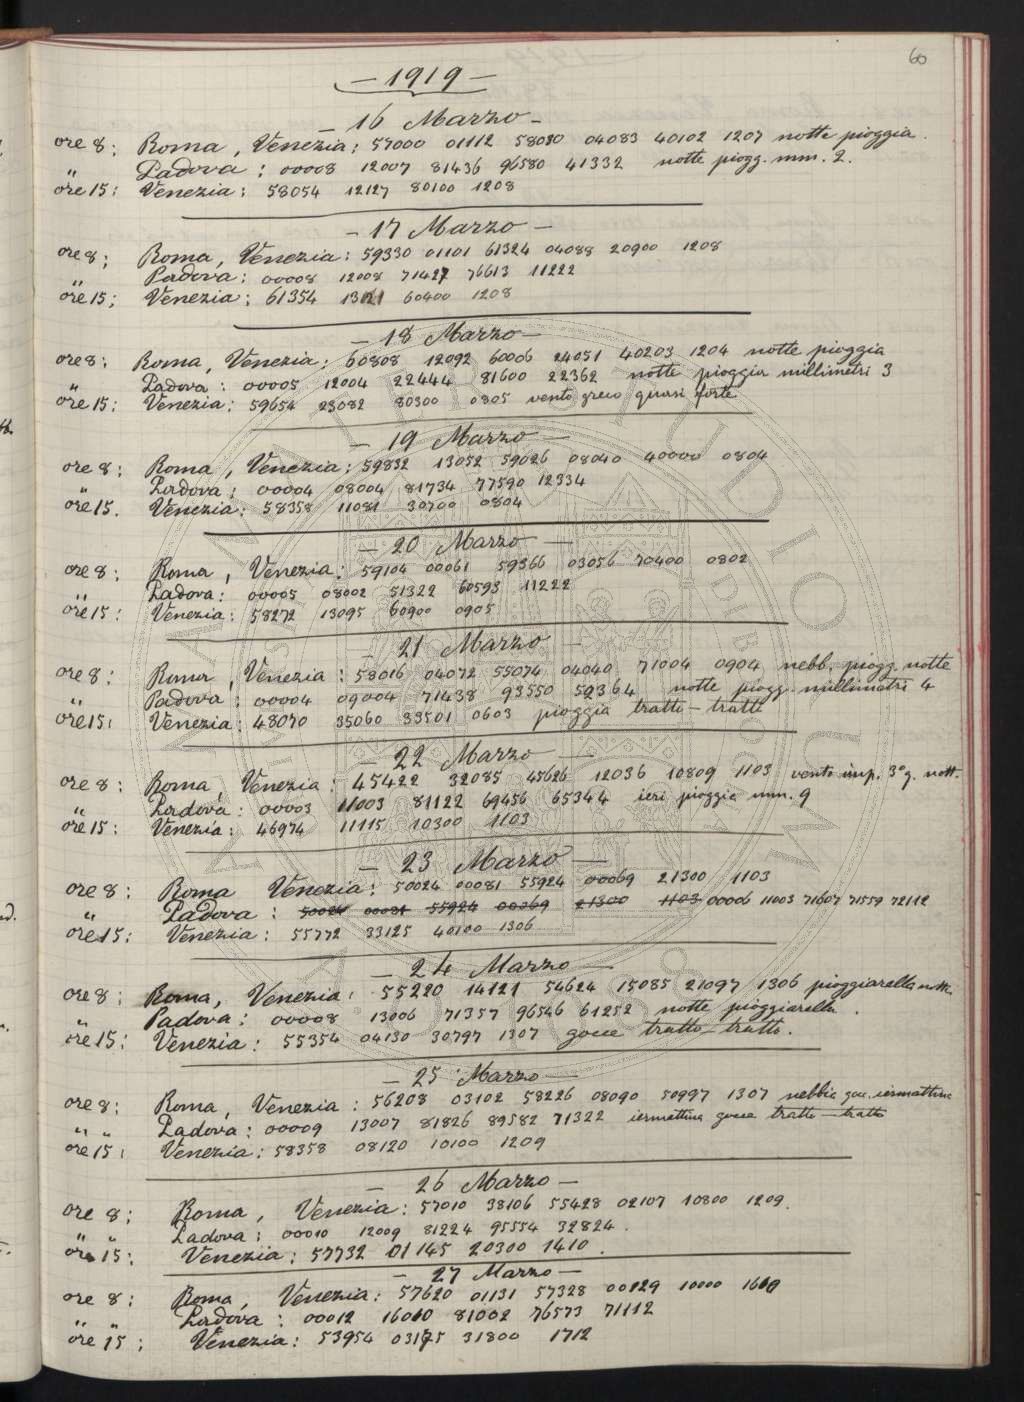 60
— 1919 —
— 16 Marzo —
ore 8: Roma, Venezia: 57000 01112 58030 04083 40102 1207 notte pioggia.
" Padova: 00008 12007 81436 96580 41332 notte piogg. mm. 2.
ore 15: Venezia: 58054 12127 80100 1208
— 17 Marzo —
ore 8: Roma, Venezia: 59330 01101 61324 04088 20900 1208
" Padova: 00008 12008 71427 76613 11222
ore 15: Venezia: 61354 13121 60400 1208
— 18 Marzo —
ore 8: Roma, Venezia: 60808 12092 60006 24051 40203 1204 notte pioggia
" Padova: 00005 12004 22444 81600 22362 notte pioggia millimetri 3
ore 15: Venezia: 59654 23082 80300 0805 vento greco quasi forte
— 19 Marzo —
ore 8: Roma, Venezia: 59832 13052 59026 08040 40000 0804
" Padova: 00004 08004 81734 77590 12334
ore 15. Venezia: 58358 11081 30700 0804
— 20 Marzo —
ore 8: Roma, Venezia: 59104 00061 59366 03056 70400 0802
" Padova: 00005 08002 51322 60593 11222
ore 15: Venezia: 58272 13095 60900 0905
— 21 Marzo —
ore 8: Roma, Venezia: 58016 04072 55074 04040 71004 0904 nebb. piogg. notte
" Padova: 00004 09004 71438 93550 52364 notte piogg. millimetri 4
ore 15: Venezia: 48070 35060 33501 0603 pioggia tratto-tratto
— 22 Marzo —
ore 8: Roma, Venezia: 45422 32085 45626 12036 10809 1103 vento imp. 3° q. nott.
" Padova: 00003 11003 81122 69456 65344 ieri pioggia mm. 9
ore 15: Venezia: 46974 11115 10300 1103
— 23 Marzo —
ore 8: Roma Venezia: 50024 00081 55924 00069 21300 1103
" Padova: 50024 00081 55924 00069 21300 1103 00006 11003 71607 71559 72112
ore 15: Venezia: 55772 33125 40100 1306
— 24 Marzo —
ore 8: Roma, Venezia: 55220 14121 54624 15085 21097 1306 pioggiarella nott.
" Padova: 00008 13006 71357 96546 61252 notte pioggiarella.
ore 15: Venezia: 55354 04130 30797 1307 gocce tratto-tratto.
— 25 Marzo —
ore 8: Roma, Venezia: 56208 03102 58226 08090 50997 1307 nebbia goc. iermattina
" " Padova: 00009 13007 81826 89582 71322 iermattina gocce tratto-tratto
ore 15: Venezia: 58358 08120 10100 1209
— 26 Marzo —
ore 8: Roma, Venezia: 57010 38106 55428 02107 10800 1209.
" " Padova: 00010 12009 81224 95554 32824.
ore 15: Venezia: 57732 01145 20300 1410.
— 27 Marzo —
ore 8: Roma, Venezia: 57620 01131 57328 00129 10000 1609
" " Padova: 00012 16010 81002 76573 71112
ore 15: Venezia: 53954 03175 31800 1712